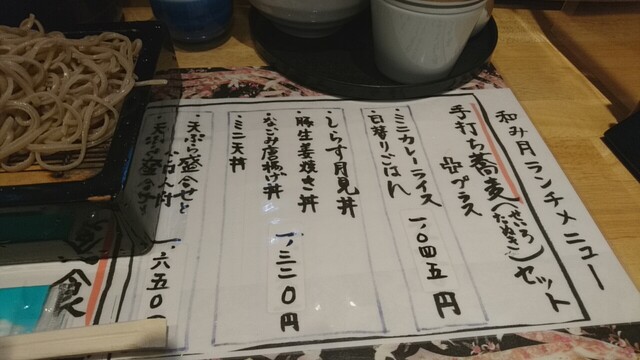 和み月ランチメニュー
手打ち蕎麦(せいろ たぬき)セット
プラス
・ミニカレーライス
・日替りごはん
一、〇四五円
・しらす月見丼
・豚生姜焼き丼
・なごみ唐揚げ丼
・ミニ天丼
一、三二〇円
・天ぷら盛合せと
・天ぷら盛合せ
一、六五〇
食